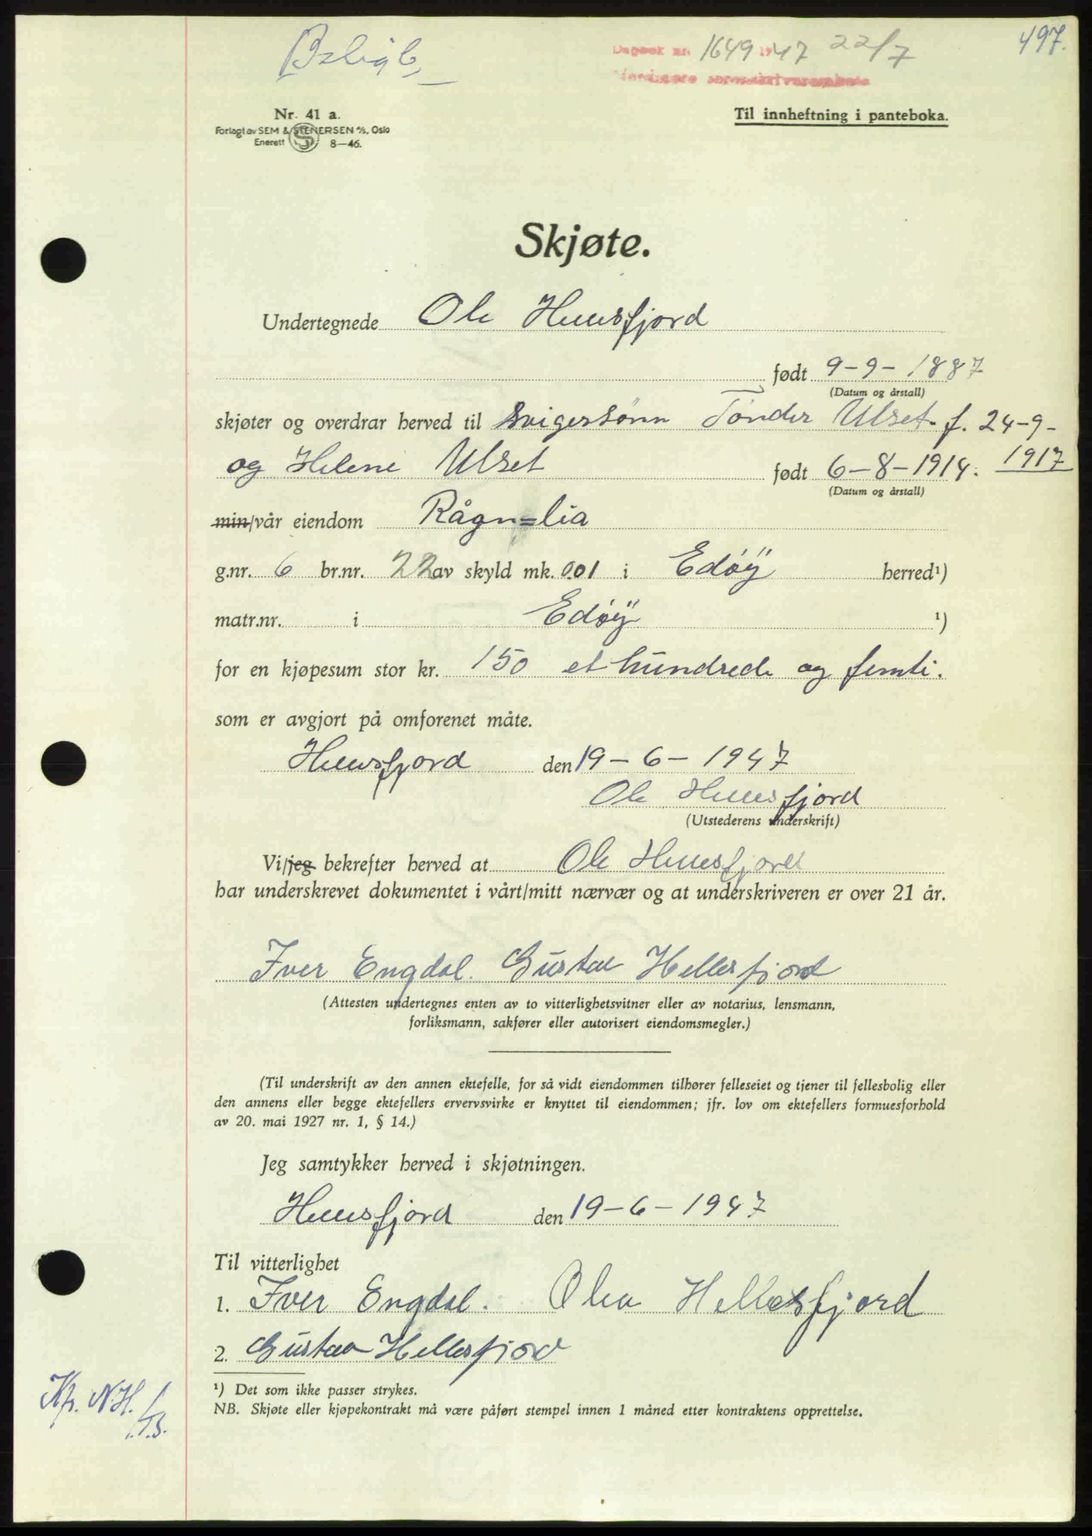 497.
Dagbok nr. 1649 1947 22/7
Nordmøre sorenskriverembede
Nr. 41 a.
Forlagt av SEM & STENERSEN A/S, Oslo
Enerett 8—46.
Til innheftning i panteboka.
Skjøte.
Undertegnede Ole Hellesfjord
født 9-9-1887
(Datum og årstall)
skjøter og overdrar herved til svigersønn Tønder Ulset. f. 24-9-
1917
og Helene Ulset født 6-8-1914.
(Datum og årstall)
min/vår eiendom Rågn=lia
g.nr. 6 br.nr. 22 av skyld mk. 0.01 i Edøy herred¹)
matr.nr. i Edøy ¹)
for en kjøpesum stor kr. 150 et hundrede og femti.
som er avgjort på omforenet måte.
Hellesfjord den 19-6-1947
Ole Hellesfjord
(Utstederens underskrift)
Vi/jeg bekrefter herved at Ole Hellesfjord
har underskrevet dokumentet i vårt/mitt nærvær og at underskriveren er over 21 år.
Iver Engdal. Gustav Hellesfjord
(Attesten undertegnes enten av to vitterlighetsvitner eller av notarius, lensmann,
forliksmann, sakfører eller autorisert eiendomsmegler.)
(Til underskrift av den annen ektefelle, for så vidt eiendommen tilhører felleseiet og tjener til fellesbolig eller
den annens eller begge ektefellers ervervsvirke er knyttet til eiendommen; jfr. lov om ektefellers formuesforhold
av 20. mai 1927 nr. 1, § 14.)
Jeg samtykker herved i skjøtningen.
Hellesfjord den 19-6-1947
Til vitterlighet
1. Iver Engdal. Olea Hellesfjord
2. Gustav Hellesfjord
¹) Det som ikke passer strykes.
NB. Skjøte eller kjøpekontrakt må være påført stempel innen 1 måned etter kontraktens opprettelse.
Kp. N.H.